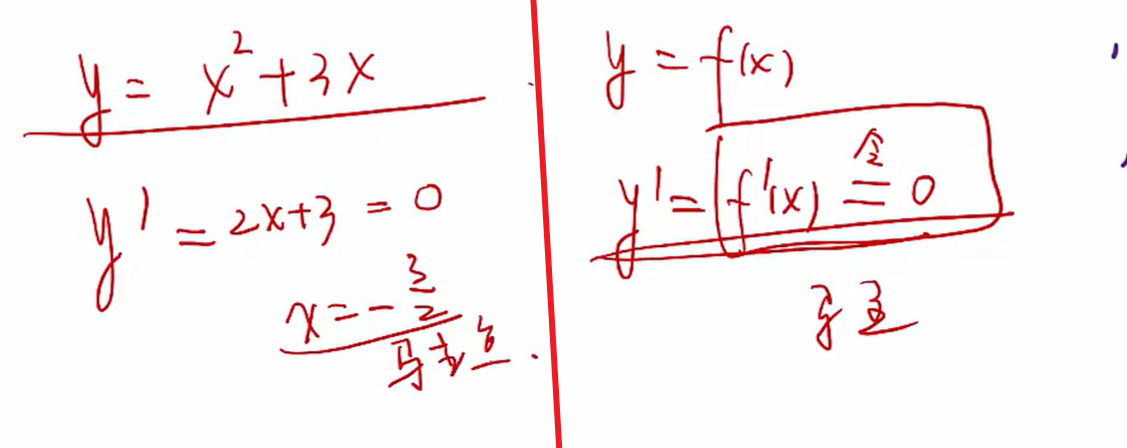 y = x² + 3x
y' = 2x+3 = 0
x = - 3/2
驻点.
y = f(x)
y' = f'(x) 令= 0